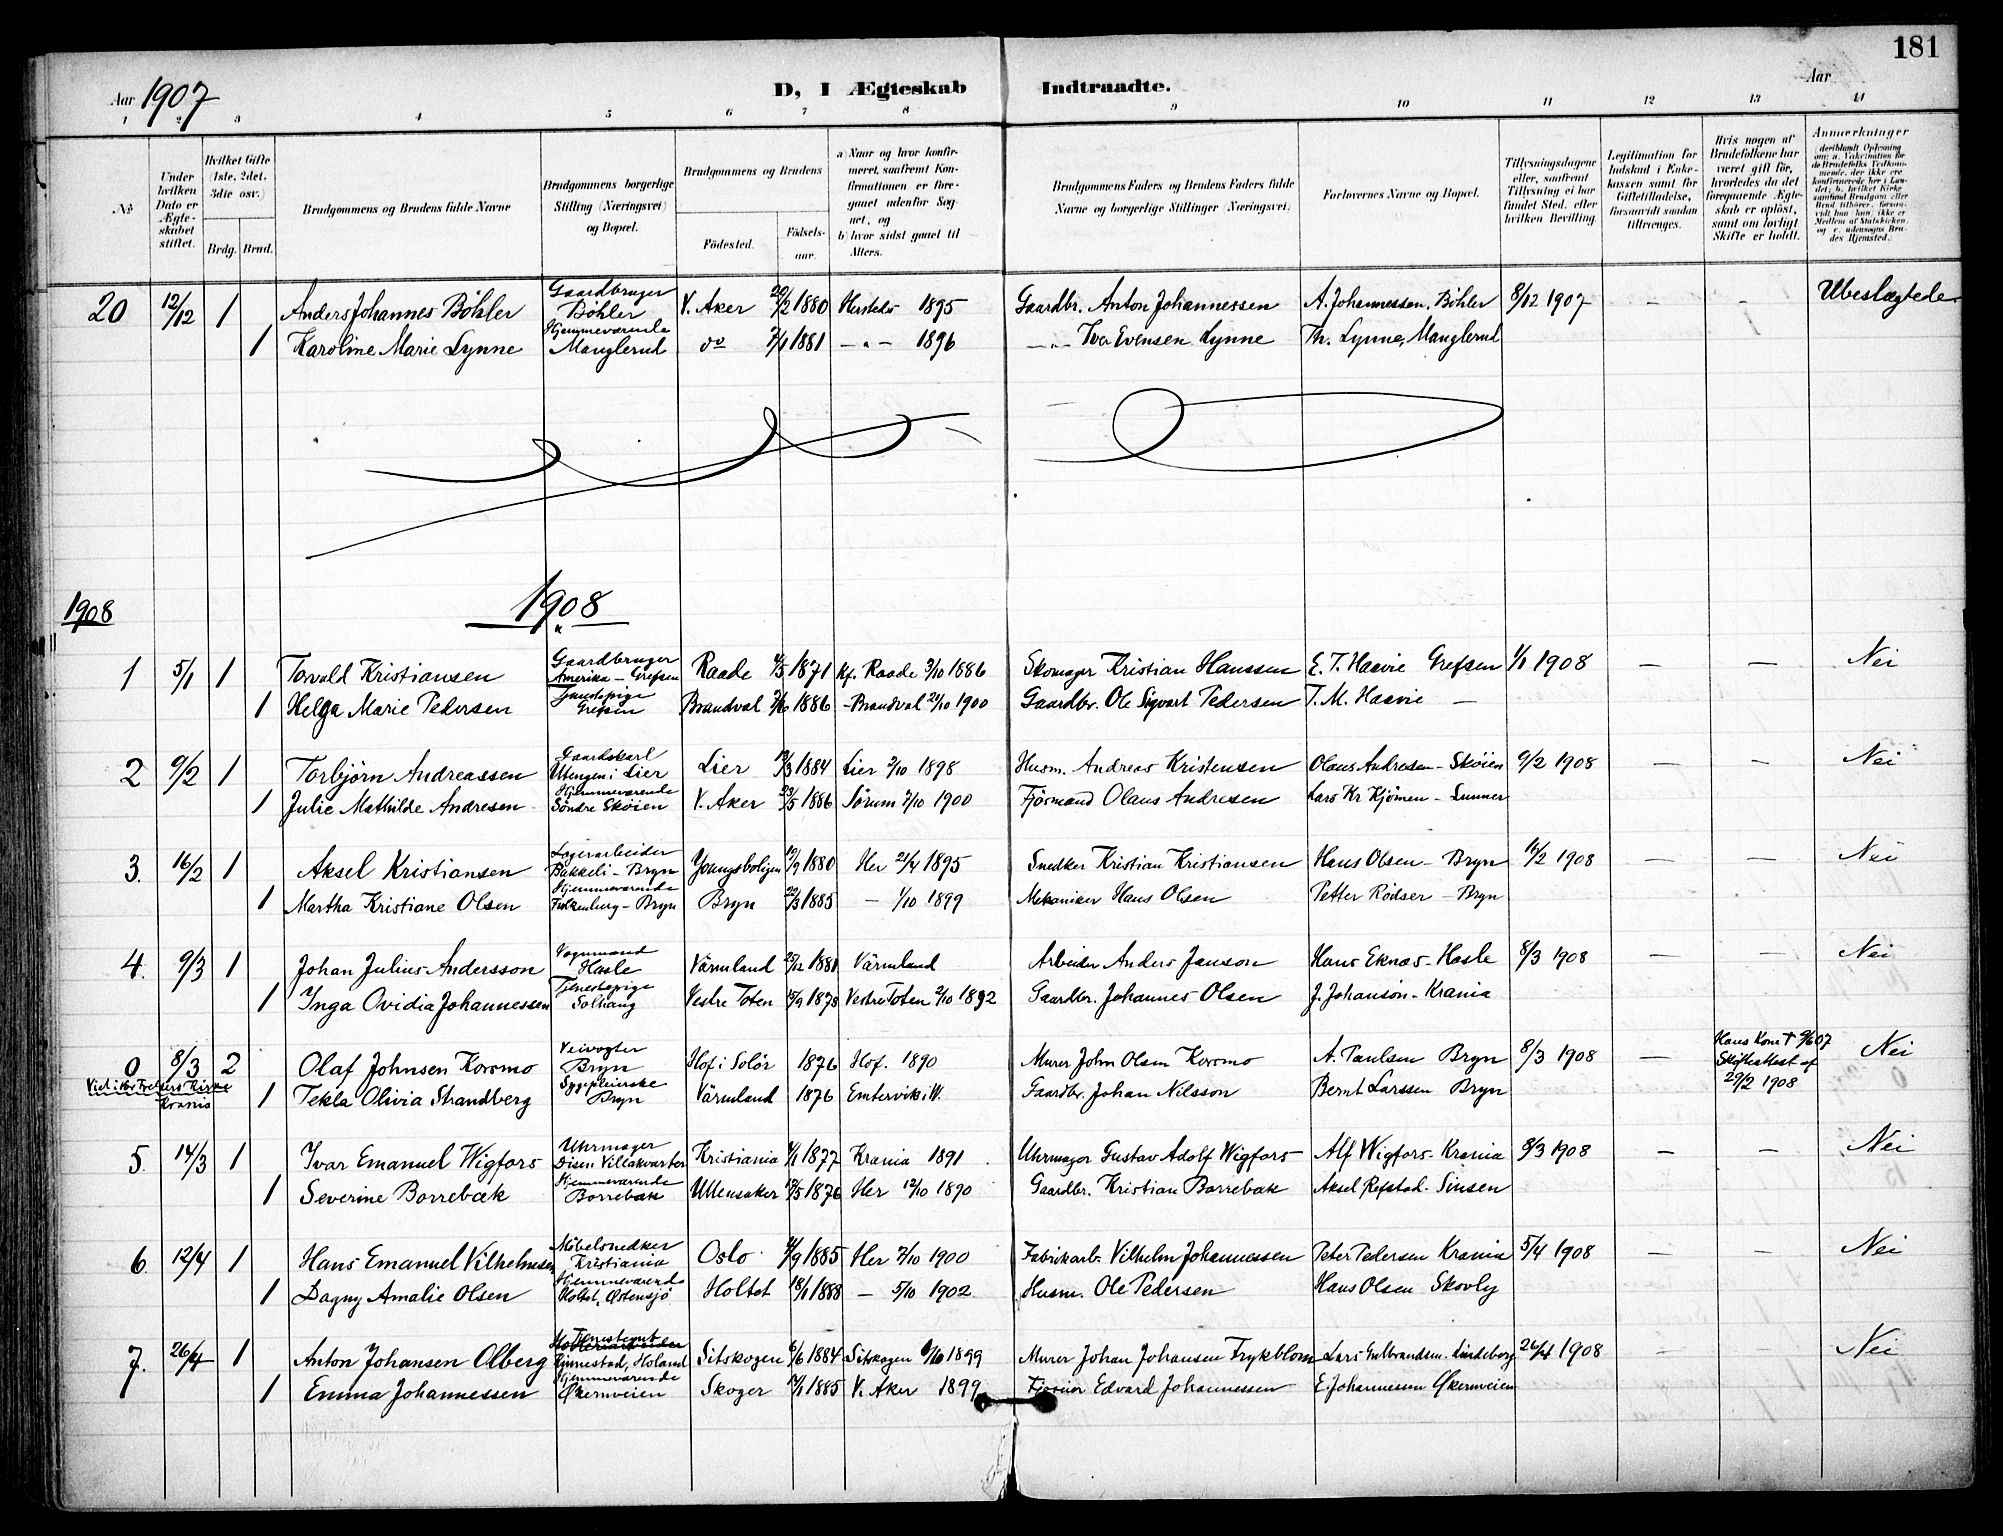 181
Aar 1907
D, I Ægteskab Indtraadte.
Aar
1 2 3 4 5 6 7 8 9 10 11 12 13 14
No
Under hvilken Dato er Ægteskabet stiftet.
Hvilket Gifte (1ste, 2det, 3die osv.)
Brdg. Brud.
Brudgommens og Brudens fulde Navne
Brudgommens borgerlige Stilling (Næringsvei) og Bopæl.
Brudgommens og Brudens
Födested.
Födselsaar.
a) Naar og hvor konfirmeret, saafremt Konfirmationen er foregaaet udenfor Sognet, og
b) hvor sidst gaaet til Alters.
Brudgommens Faders og Brudens Faders fulde Navne og borgerlige Stillinger (Næringsvei)
Forlovernes Navne og Bopæl.
Tillysningsdagene eller, saafremt Tillysning ei har fundet Sted, efter hvilken Bevilling.
Legitimation for Indskud i Enkekassen samt for Giftetilladelse, forsaavidt saadan tiltrænges.
Hvis nogen af Brudefolkene har været gift før, hvorledes da det foregaaende Ægteskab er opløst, samt om lovligt Skifte er holdt.
Anmerkninger
20 12/12 1 Anders Johannes Böhler Gaardbruger Böhler V. Aker 1880 1895 Gaardbr. Anton Johannessen A. Johannessen, Böhler 8/12 1907 — — Ubeslægtede
1 Karoline Marie Lynne Hjemmeværende Manglerud do 1881 — " — 1896 — " — Iver Evensen Lynne Th. Lynne, Manglerud
1908
1908
1 5/1 1 Torvald Kristiansen Gaardbruger Amerika - Grefsen Raade 1871 Kf. Raade 3/10 1886 Skomager Kristian Hanssen E. T. Haavie Grefsen 1/1 1908 — — Nei
1 Helga Marie Pedersen Tjenestepige Grefsen Brandval 1886 - Brandval 21/10 1900 Gaardbr. Ole Sigvart Pedersen T. M. Haavie —
2 9/2 1 Torbjørn Andreassen Gaardskarl Lier Lier 1884 Lier 2/10 1898 Husm. Andreas Kristensen Olaus Andresen - Skøien 9/2 1908 — — Nei
1 Julie Mathilde Andresen Hjemmeværende Søndre Skøien V. Aker 1886 Sørum 7/10 1900 Fjösmand Olaus Andresen Lars Kr Kjömen - Lunner
3. 16/2 1 Aksel Kristiansen Lagerarbeider Bakkeli - Bryn 1880 Her 21/4 1895 Snedker Kristian Kristiansen Hans Olsen - Bryn 16/2 1908 — — Nei
1 Martha Kristiane Olsen Hjemmeværende Falkenberg - Bryn Bryn 1885 — 1/10 1899 Mekaniker Hans Olsen Petter Rödser - Bryn
4. 9/3 1 Johan Julius Andersson Vognmand Hasle Värmland 1881 Värmland Arbeider Anders Janson Hans Eknæs - Hasle 8/3 1908 — — Nei
1 Inga Ovidia Johannessen Tjenestepige Solhaug Vestre Toten 1878 Vestre Toten 2/10 1892 Gaardbr. Johannes Olsen J. Johanson - Krania
0 8/3 2 Olaf Johnsen Korsmo Veivogter Bryn Hof i Solör 1876 Hof. 1890 Murer John Olsen Korsmo A. Paulsen Bryn 8/3 1908 — Hans Kone † 9/6 07 Skifteattest af 29/2 1908 Nei
Viet i Kirke Krania
1 Tekla Olivia Strandberg Sygepleierske Bryn Värmland 1876 Emtervik i W. Gaardbr. Johan Nilsson Bernt Larssen Bryn
5. 14/3 1 Ivar Emanuel Wigfors Uhrmager Disen Villakvarter Kristiania 1877 Krania 1891 Uhrmager Gustav Adolf Wigfors Alf Wigfors - Krania 8/3 1908 — — Nei
1 Severine Borrebæk Hjemmeværende Borrebæk Ullensaker 1876 Her 12/10 1890 Gaardbr. Kristian Borrebæk Aksel Refstad - Sinsen
6. 12/4 1 Hans Emanuel Vilhelmsen Möbelsnedker Kristiania Oslo 1885 Her 7/10 1900 Fabrikarb. Vilhelm Johannessen Peter Pedersen Krania 5/4 1908 — — Nei
1 Dagny Amalie Olsen Hjemmeværende Holtet, Østensjö Holtet 18/1 1888 — 5/10 1902 Husm. Ole Pedersen Hans Olsen Skovly
7. 26/4 1 Anton Johansen Olberg Holand Sitskogen 6/6 1884 Sitskogen 1899 Murer Johan Johansen Frykblom Lars Gulbrandsen Lindeberg 26/4 1908 — — Nei
1 Emma Johannessen Hjemmeværende Økernveien Skoger 1885 V. Aker 1899 Edvard Johannessen E. Johannessen Økernveien